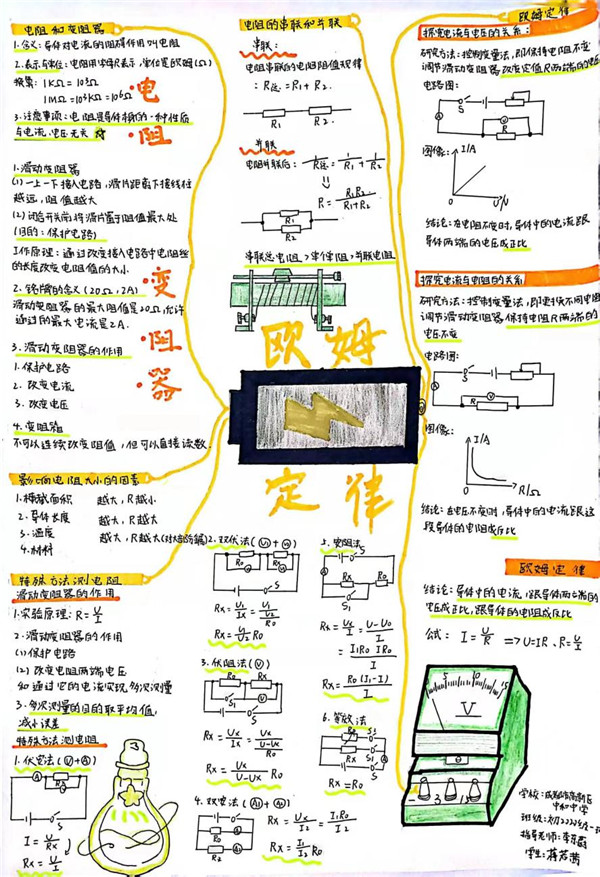 电阻和变阻器
1.含义:导体对电流的阻碍作用叫电阻
2.表示与单位:电阻用字母R表示,单位是欧姆(Ω)
换算: 1KΩ=10³Ω
1MΩ=10³KΩ=10⁶Ω
3.注意事项:电阻是导体本身的一种性质
与电流、电压无关
·电
·阻
1.滑动变阻器
(1)一上一下接入电路,滑片距离下接线柱
越远,阻值越大
(2)闭合开关前将滑片置于阻值最大处
(目的:保护电路)
工作原理:通过改变接入电路中电阻丝
的长度改变电阻值的大小.
2.铭牌的含义(20Ω,2A)
滑动变阻器的最大阻值是20Ω,允许
通过的最大电流是2A.
3.滑动变阻器的作用
1.保护电路
2.改变电流
3.改变电压
·变
·阻
·器
4.变阻箱
不可以连续改变阻值,但可以直接读数.
影响电阻大小的因素
1.横截面积 越大,R越小
2.导体长度 越大,R越大
3.温度
4.材料
特殊方法测电阻
滑动变阻器的作用
1.实验原理:R=U/I
2.滑动变阻器的作用
(1)保护电路
(2)改变电阻两端电压
和通过它的电流实现多次测量
3.多次测量的目的取平均值,
减小误差
特殊方法测电阻
1.伏安法(V+A)
I=U/R
Rx=U/I
3
电阻的串联和并联
串联:
电阻串联的电阻阻值规律
:R总=R1+R2.
R1 R2
并联
电阻并联后: 1/R总=1/R1+1/R2
R=R1R2/R1+R2
R1
R2
串联总电阻>单个电阻>并联电阻
欧姆
定律
2.双伏法(V1+V2)
Rx=U1/Ix=U1/(U2/R0)
Rx=U1/U2 R0
3.伏阻法(V)
Rx=Ux/Ix=Ux/((U-Ux)/R0)
Rx=Ux/U-Ux R0
4.双安法(A1+A2)
Rx=Ux/I2=I1R0/I2
Rx=I1/I2 R0
5.安阻法
Rx=Ux/I=U-U0/I
Rx=R0(I1-I)/I
6.等效法
Rx=R0
欧姆定律
探究电流与电压的关系:
研究方法:控制变量法,即保持电阻不变
调节滑动变阻器,改变定值R两端的电压
电路图:
图像:
I/A
U/V
结论:在电阻不变时,导体中的电流跟
导体两端的电压成正比
探究电流与电阻的关系
研究方法:控制变量法,即更换不同电阻
调节滑动变阻器,保持电阻R两端的
电压不变
电路图:
图像:
I/A
R/Ω
结论:在电压不变时,导体中的电流跟这
段导体的电阻成反比
欧姆定律
结论:导体中的电流,跟导体两端的
电压成正比,跟导体的电阻成反比
公式: I=U/R =>U=IR、R=U/I
5 10 15
V
- 3 15
学校:
中和中学
指导老师:
学生: